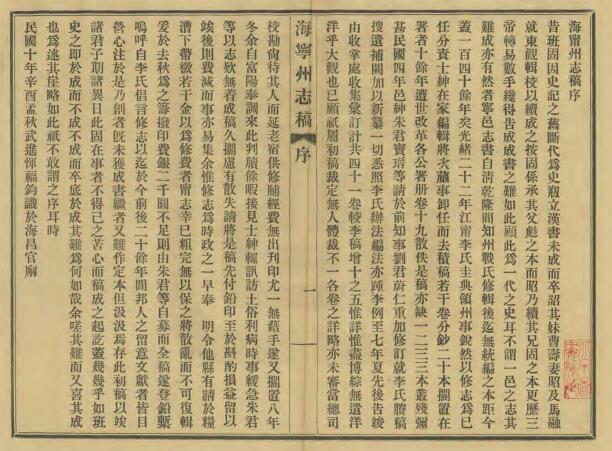 海甯州志稿序
昔班固因史記之舊斷代爲史剏立漢書未成而卒詔其妹曹壽妻昭及馬融
就東觀輯校以續成之按固係承其父彪之本而昭乃續其兄固之本更歷三
帝轉易數手纔得告成成書之難如此顧此爲一代之史耳不謂一邑之志其
難成亦有然者寧邑志書自清乾隆間知州戰氏修輯後迄無統編之本距今
蓋一百四十餘年矣光緒二十二年江甯李氏圭典領州事銳然以修志爲已
任分責士紳在家編輯將次蕆事卸任而去積稿若干卷分鈔二十本擱置在
署者十餘年遭世改革各公署册卷十九散佚是稿亦缺一二三三本叢殘彌
甚民國四年邑紳朱君寶瑨等請於前知事劉君蔚仁重加修訂就李氏賸稿
搜遺補闕加以新纂一切悉照李氏辦法編法亦踵李例至七年夏先後告竣
由收掌處收集彙訂計共四十一卷較李稿增十之五惟詳惟盡博綜無遺洋
洋乎大觀也已顧祇屬初稿裁定無人體裁不一各卷之詳略亦未審當總司
海寧州志稿
序
一
校勘尙待其人而延老宿供修脯經費無出刋印尤一無藉手遂又擱置八年
冬余自富陽奉調來此判牘餘暇接見士紳輒訊訪土俗利病時事緩急朱君
等以志欵無着成稿久擱慮有散失請將是稿先付鉛印至於斟酌損益留以
竢後則費減而事亦易集余惟修志爲時政之一早奉　明令他縣有請於糧
漕下帶徵若干金以爲修費者甯志幸已粗完無以保之將散亂而不可復輯
爰於去秋爲之籌撥印費銀二千圓不足則由朱君等自募而全稿遂登鉛槧
嗚呼自李氏倡言修志以迄於今前後二十餘年間邦人之留意文獻者皆目
營心注於是乃創者旣未獲成書繼者又難作定本但汲汲焉存此初稿以竢
諸君子期諸異日此固在事者不得已之苦心而稿成之起訖蓋幾幾乎如班
史之即於成而不成而卒底於成其難爲何如哉余嗟其難而又喜其成
也爲述其崖略如此祇不敢謂之序耳時
民國十年辛酉孟秋武進惲福鈞識於海昌官廨